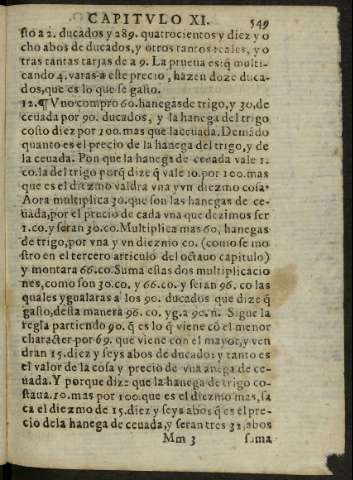 CAPITVLO XI. 549
sto a 2. ducados y 289. quatrocientos y diez y o
cho abos de ducados, y otros tantos reales, y o
tras tantas tarjas de a 9. La prueua es q̃ multi-
cando 4. varas a este precio, hazen doze duca-
dos, que es lo que se gasto.
12. ¶ Vno compro 60. hanegas de trigo, y 30, de
ceuada por 90. ducados, y la hanega del trigo
costo diez por 100. mas que la ceuada. Demãdo
quanto es el precio de la hanega del trigo, y de
la ceuada. Pon que la hanega de ceuada vale 1.
co. la del trigo porq̃ dize q̃ vale 10. por 100. mas
que es el diezmo valdra vna y vn diezmo cosa.
Aora multiplica 30. que son las hanegas de ce-
uada, por el precio de cada vna que dezimos ser
1. co. y seran 30. co. Multiplica mas 60, hanegas
de trigo, por vna y vn diezmo co. (como se mo
stro en el tercero articulo del octauo capitulo)
y montara 66. co. Suma estas dos multiplicacio
nes, como son 30. co. y 66. co. y seran 96. co. las
quales ygualaras a los 90. ducados que dize q̃
gasto, desta manera 96. co. yg. a 90. n̄. Sigue la
regla partiendo 90. q̃ es lo q̃ viene cõ el menor
character por 69. que viene con el mayor, y ven
dran 15. diez y seys abos de ducado: y tanto es
el valor de la cosa y precio de vna anega de ce-
uada. Y porque dize que la hanega de trigo co-
staua. 10. mas por 100. que es el diezmo mas, sa
ca el diezmo de 15. diez y seys abos q̃ es el pre-
cio de la hanega de ceuada, y seran tres 32. abos
Mm 3 suma